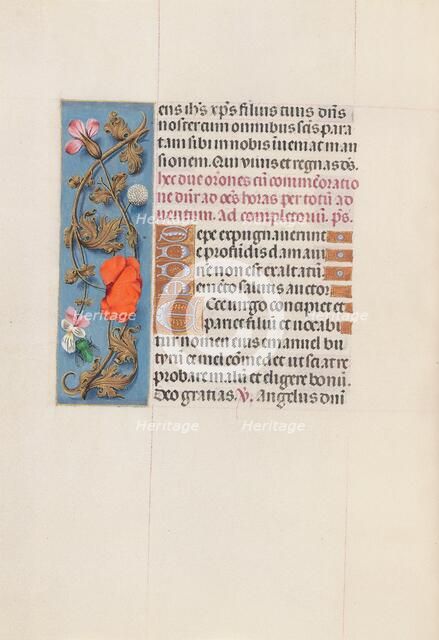 ens ihs xps filius tuus dns
noster cum omnibus scis para
tam sibi in nobis inveniat man
sionem. Qui vivis et regnas ds.
hec due orones cu commeoratio
ne dnr ad oes horas per totu ad
ventum. Ad completoriu. ps.
Sepe expugnaverunt
De profundis clamavi
Dne non est exaltatu
Memeto salutis auctor
Ecce virgo concipiet et
pariet filiu et vocabi
tur nomen eius emanuel bu
tyru et mel comed et ut sciat re
probare malu et eligere bonu.
Deo gratias. V. Angelus dni
Heritage
Heritage
Heritage
Heritage
Heritage
Heritage